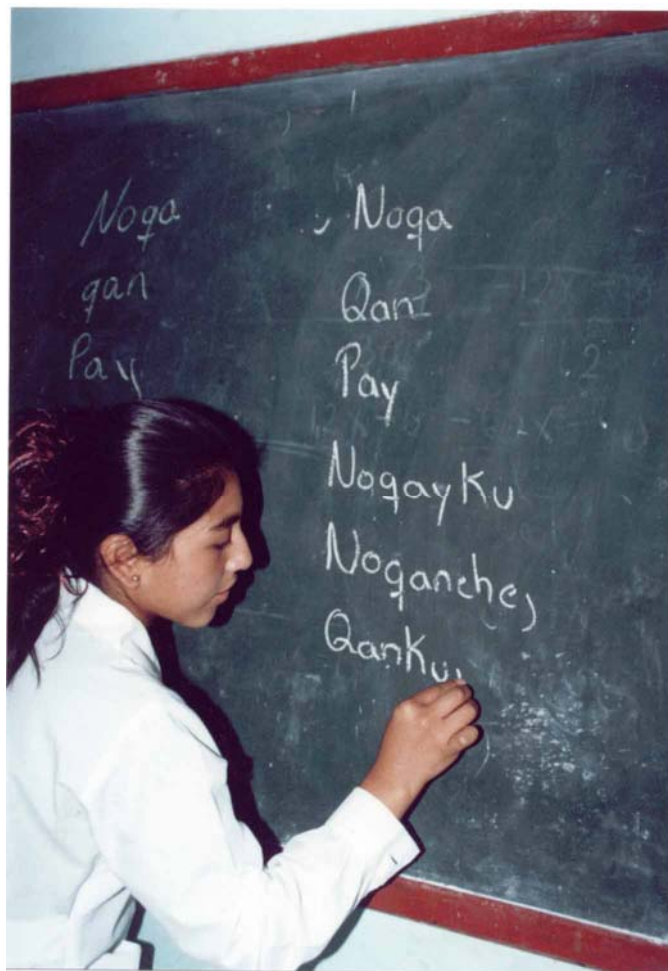 Noqa
qan
Pay
Noqa
Qan
Pay
NoqayKu
Noqanches
QanKu